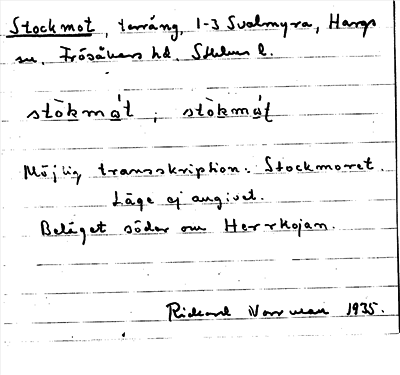 Stockmot, terräng, 1-3 Svalmyra, Hargs
sn, Frösåkers hd, Sthlms l.
stòkmat ; stòkmat
Möjlig transskription: Stockmoret.
Läge ej angivet.
Beläget söder om Herrkojan.
Rickard Norrman 1935.